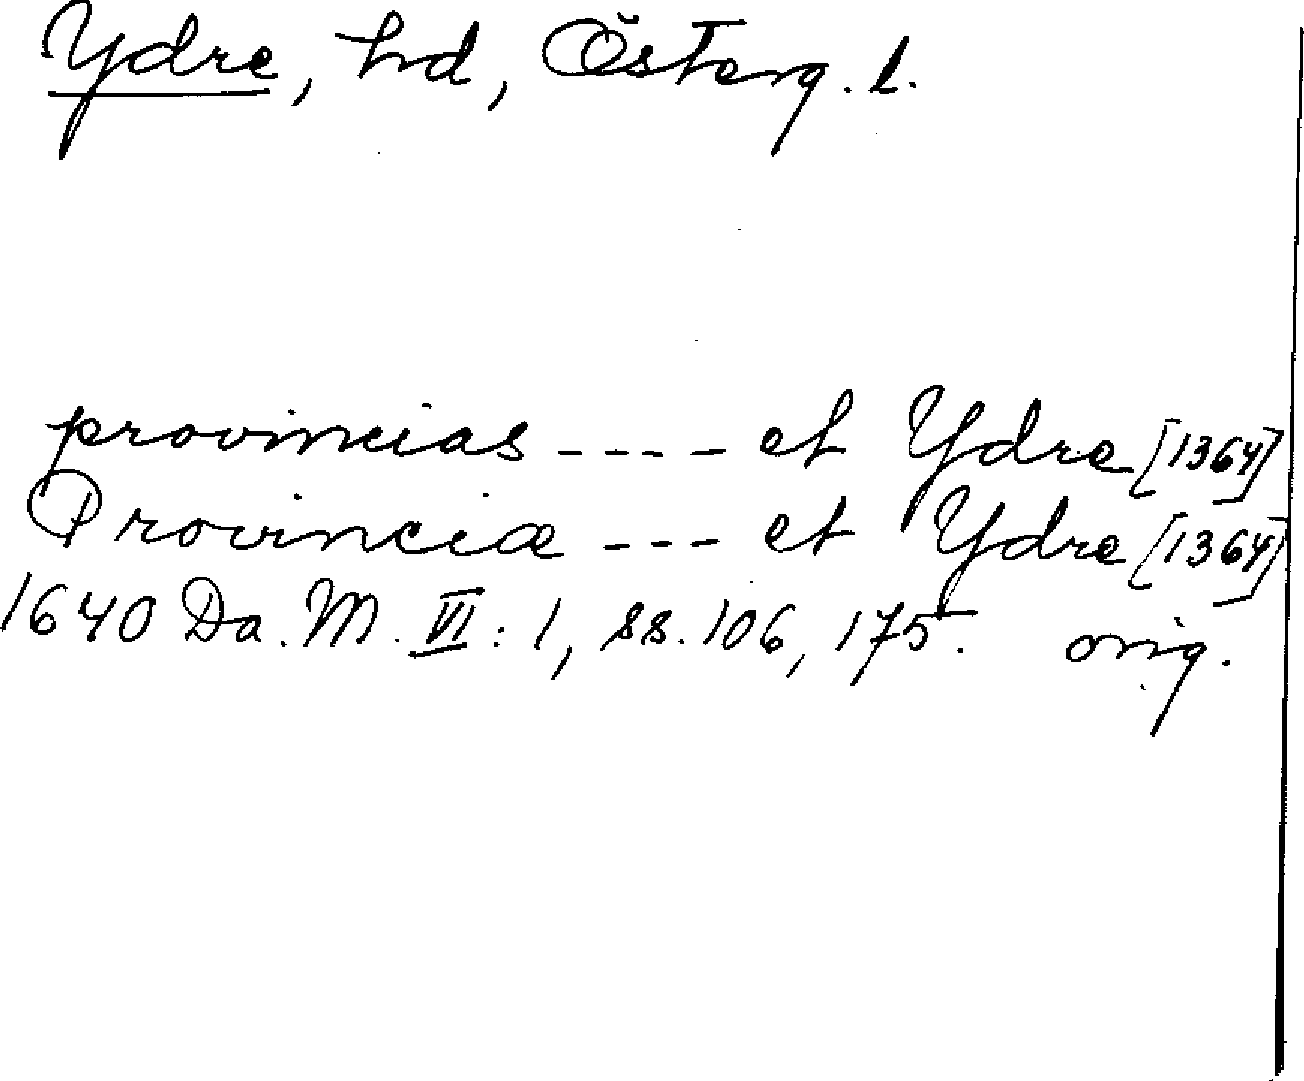 Ydre, hd, Österg. l.
provincias ---- et Ydre [1364]
Provinciæ --- et Ydre [1364]
1640 Da. M. VI: 1, ss. 106, 175. orig.